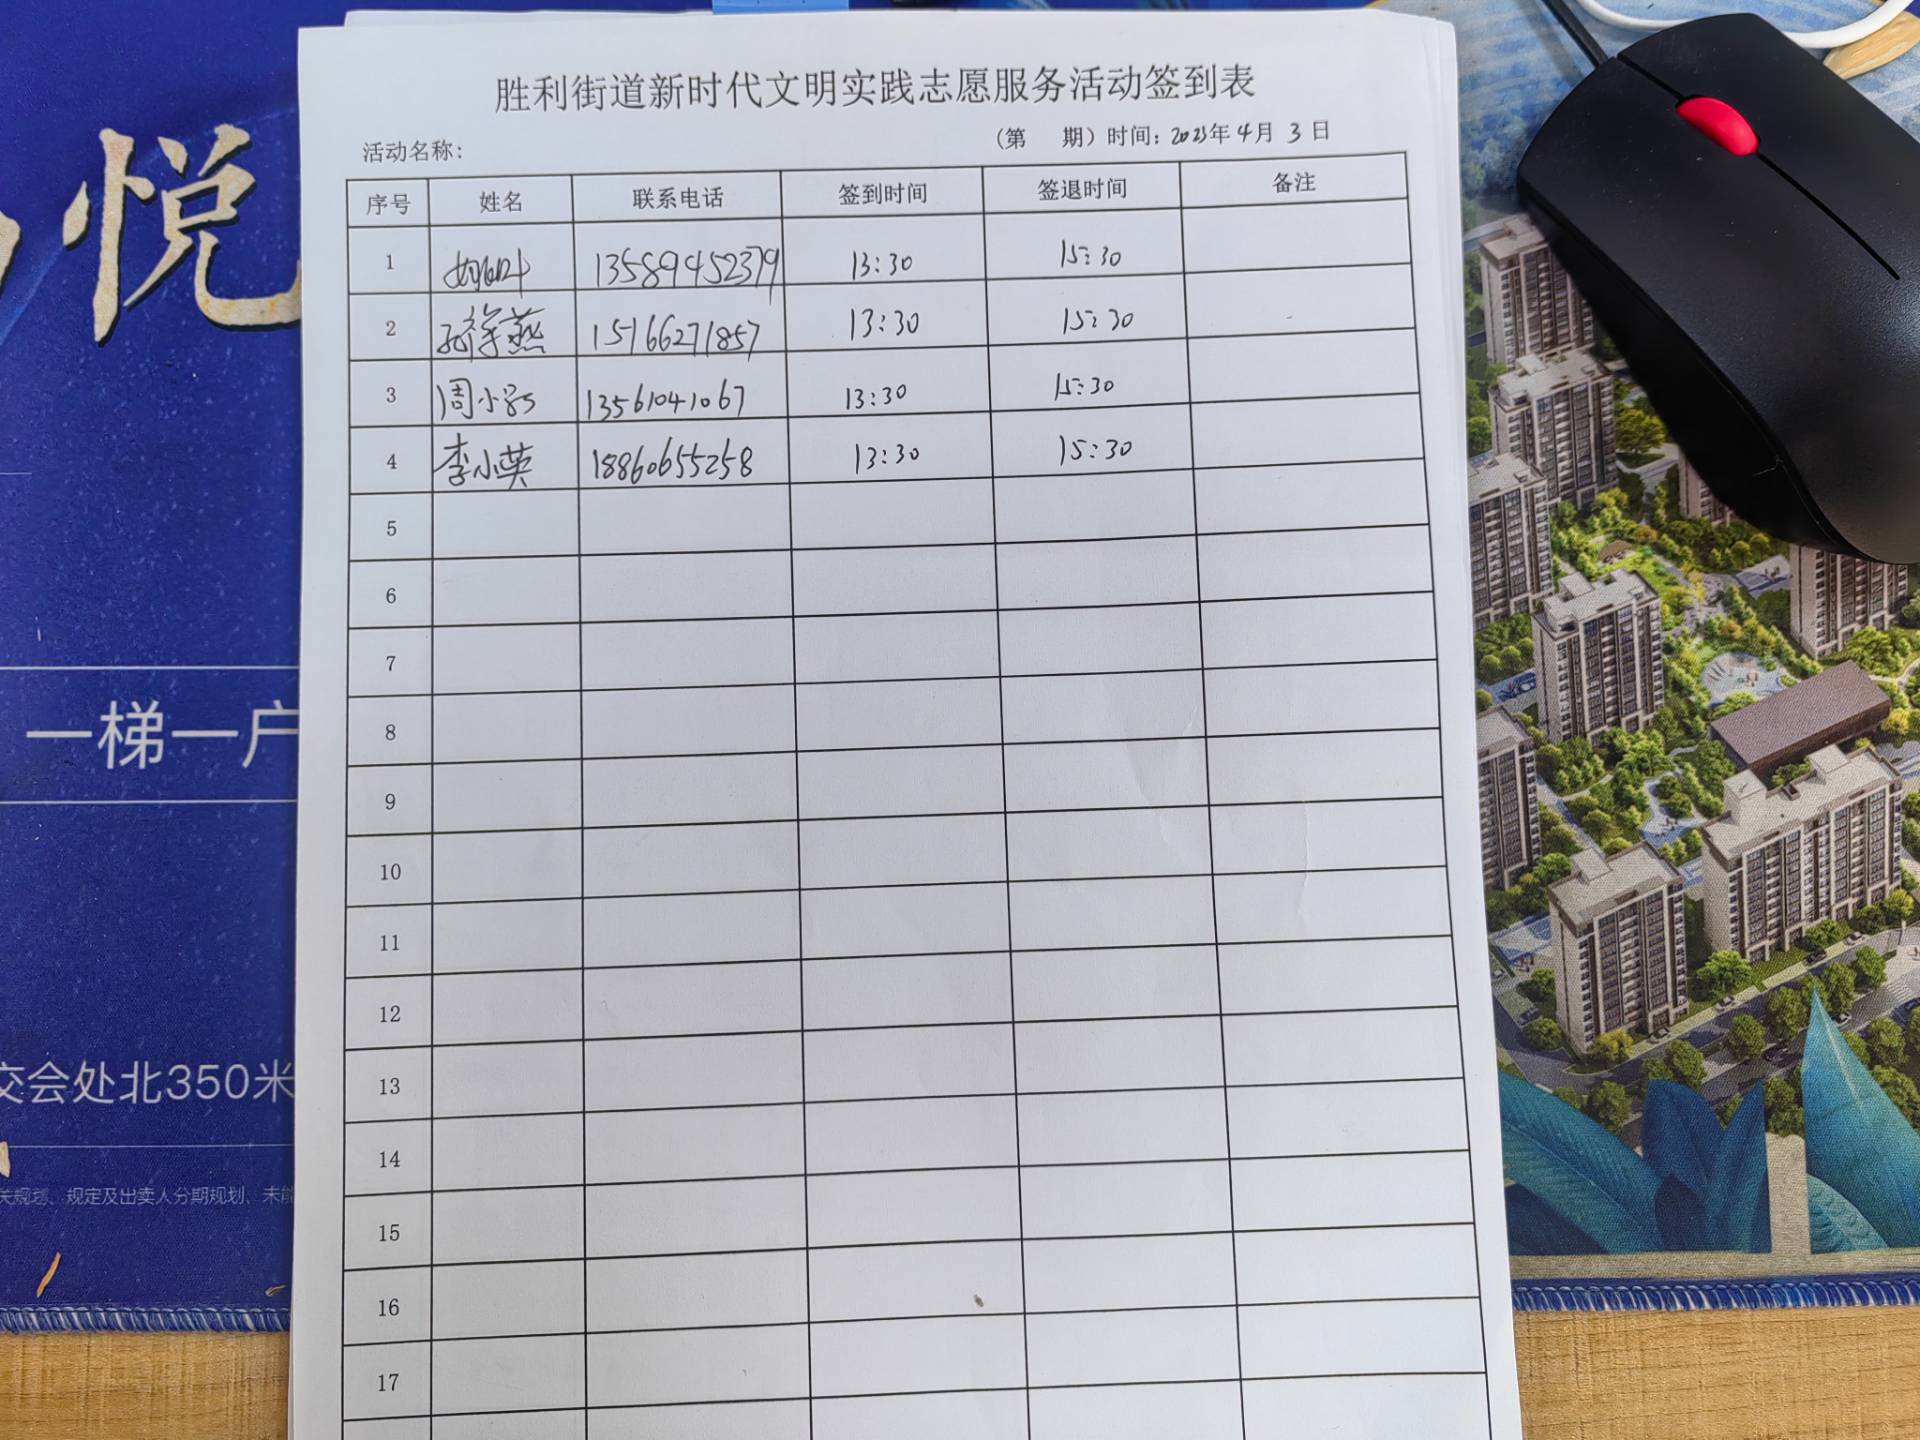 胜利街道新时代文明实践志愿服务活动签到表
活动名称: （第 期）时间: 2023年 4月 3日
序号 姓名 联系电话 签到时间 签退时间 备注
1 13589452379 13:30 15:30
2 孙徐燕 15166271857 13:30 15:30
3 周小 13561041067 13:30 15:30
4 李小英 18860655258 13:30 15:30
5
6
7
8
9
10
11
12
13
14
15
16
17
悦
一梯一户
交会处北350米
关规定、规定及出卖人分期规划、未能